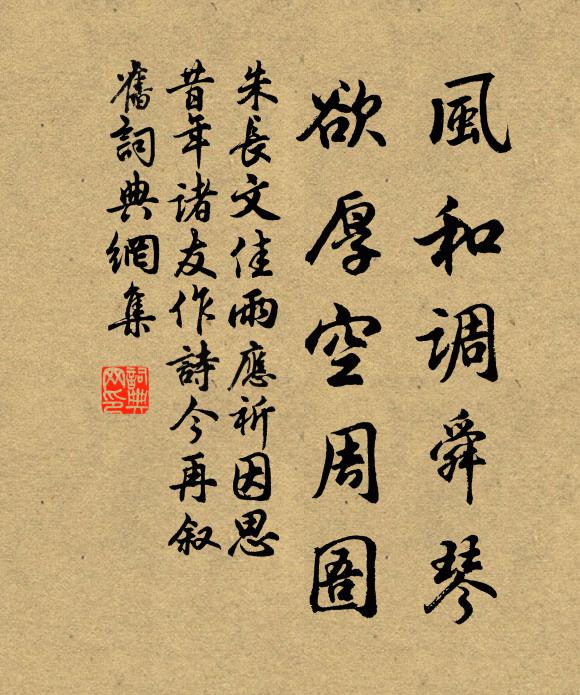 風和調舜琴
欲厚空周圄
朱長文佳雨應祈因思
昔年諸友作詩今再叙
舊詞典網集
詞典
网印